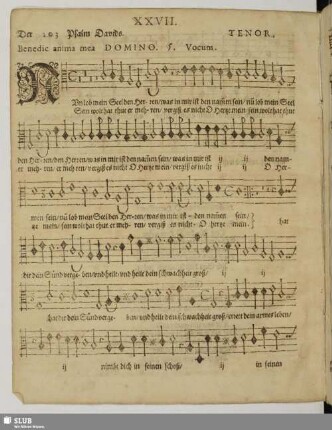 XXVII.
Der 103 Psalm Davids. TENOR.
Benedic anima mea DOMINO. 5. Vocum.
NUn lob mein Seel den Her- ren/ was in mir ist den namen sein/ nũ lob mein Seel
Sein wolthat thut er meh- ren/ vergiß es nicht O Hertze mein/ sein wolthat thut
den Her-ren/ den Herren/ was in mir ist den namen sein/ was in mir ist ij ij den nam-
er meh- ren/ er meh-ren/ vergiß es nicht O Hertze mein/ vergiß es nicht ij ij O Her-
men sein/ nũ lob mein Seel den Her-ren/ was in mir ist den namen sein/
er mein/ sein wolthat thut er meh- ren/ vergiß es nicht O hertze mein/ hat
dir dein Sünd verge- ben/ und heilt/ und heilt dein schwachheit groß/ ij ij
hat dir dein Sünd verge- ben/ und heilt dein schwachheit groß/ errett dein armes leben/
ij nimbt dich in seinen schoß/ ij in seinen
SLUB
Wir führen Wissen.